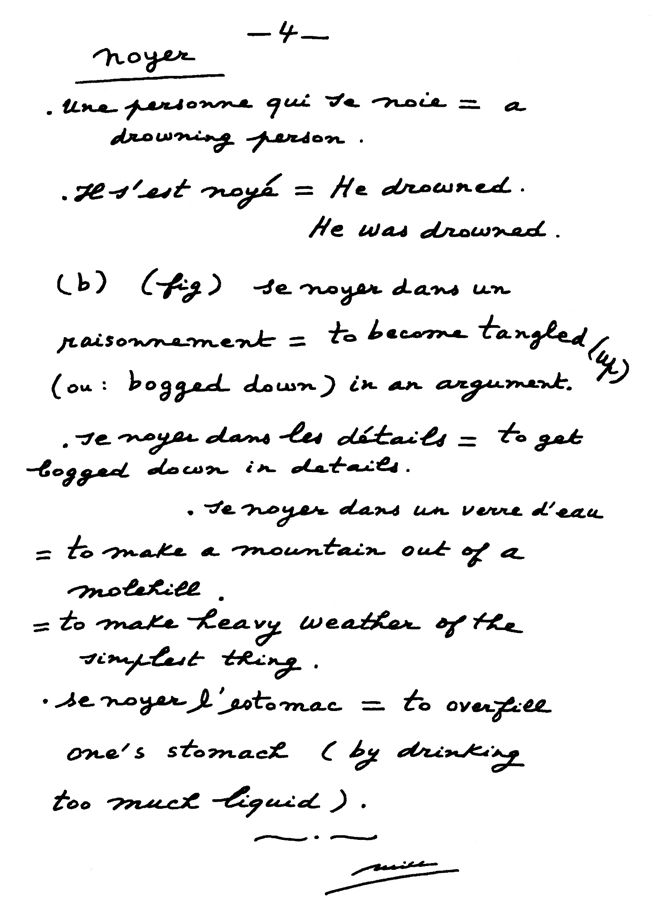 — 4 —
noyer
. Une personne qui se noie = a
drowning person .
. Il s'est noyé = He drowned .
He was drowned .
(b) (fig) se noyer dans un
raisonnement = to become tangled (up)
(ou : bogged down) in an argument.
. se noyer dans les détails = to get
bogged down in details.
. se noyer dans un verre d'eau
= to make a mountain out of a
molehill .
= to make heavy weather of the
simplest thing .
. se noyer l'estomac = to overfill
one's stomach ( by drinking
too much liquid ) .